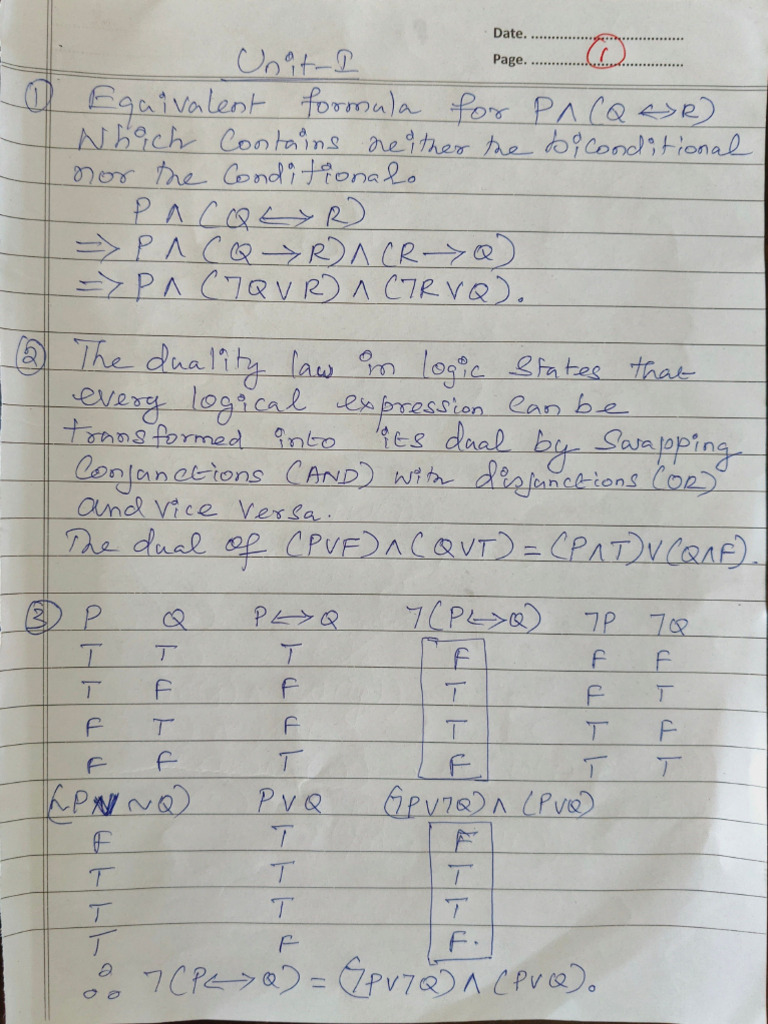 Date. ........................................
Page. ........(1)........
Unit-I
① Equivalent formula for P∧(Q↔R)
Which Contains neither the biconditional
nor the Conditional.
P∧(Q↔R)
=> P∧(Q→R)∧(R→Q)
=> P∧(¬Q∨R)∧(¬R∨Q).
② The duality law in logic States that
every logical expression Can be
transformed into its dual by Swapping
Conjunctions (AND) with disjunctions (OR)
and vice versa.
The dual of (P∨F)∧(Q∨T)=(P∧T)∨(Q∧F).
③ P Q P↔Q ¬(P↔Q) ¬P ¬Q
T T T F F F
T F F T F T
F T F T T F
F F T F T T
(~P∨~Q) P∨Q (¬P∨¬Q)∧(P∨Q)
F T F
T T T
T T T
T F F.
∴ ¬(P↔Q) = (¬P∨¬Q)∧(P∨Q).